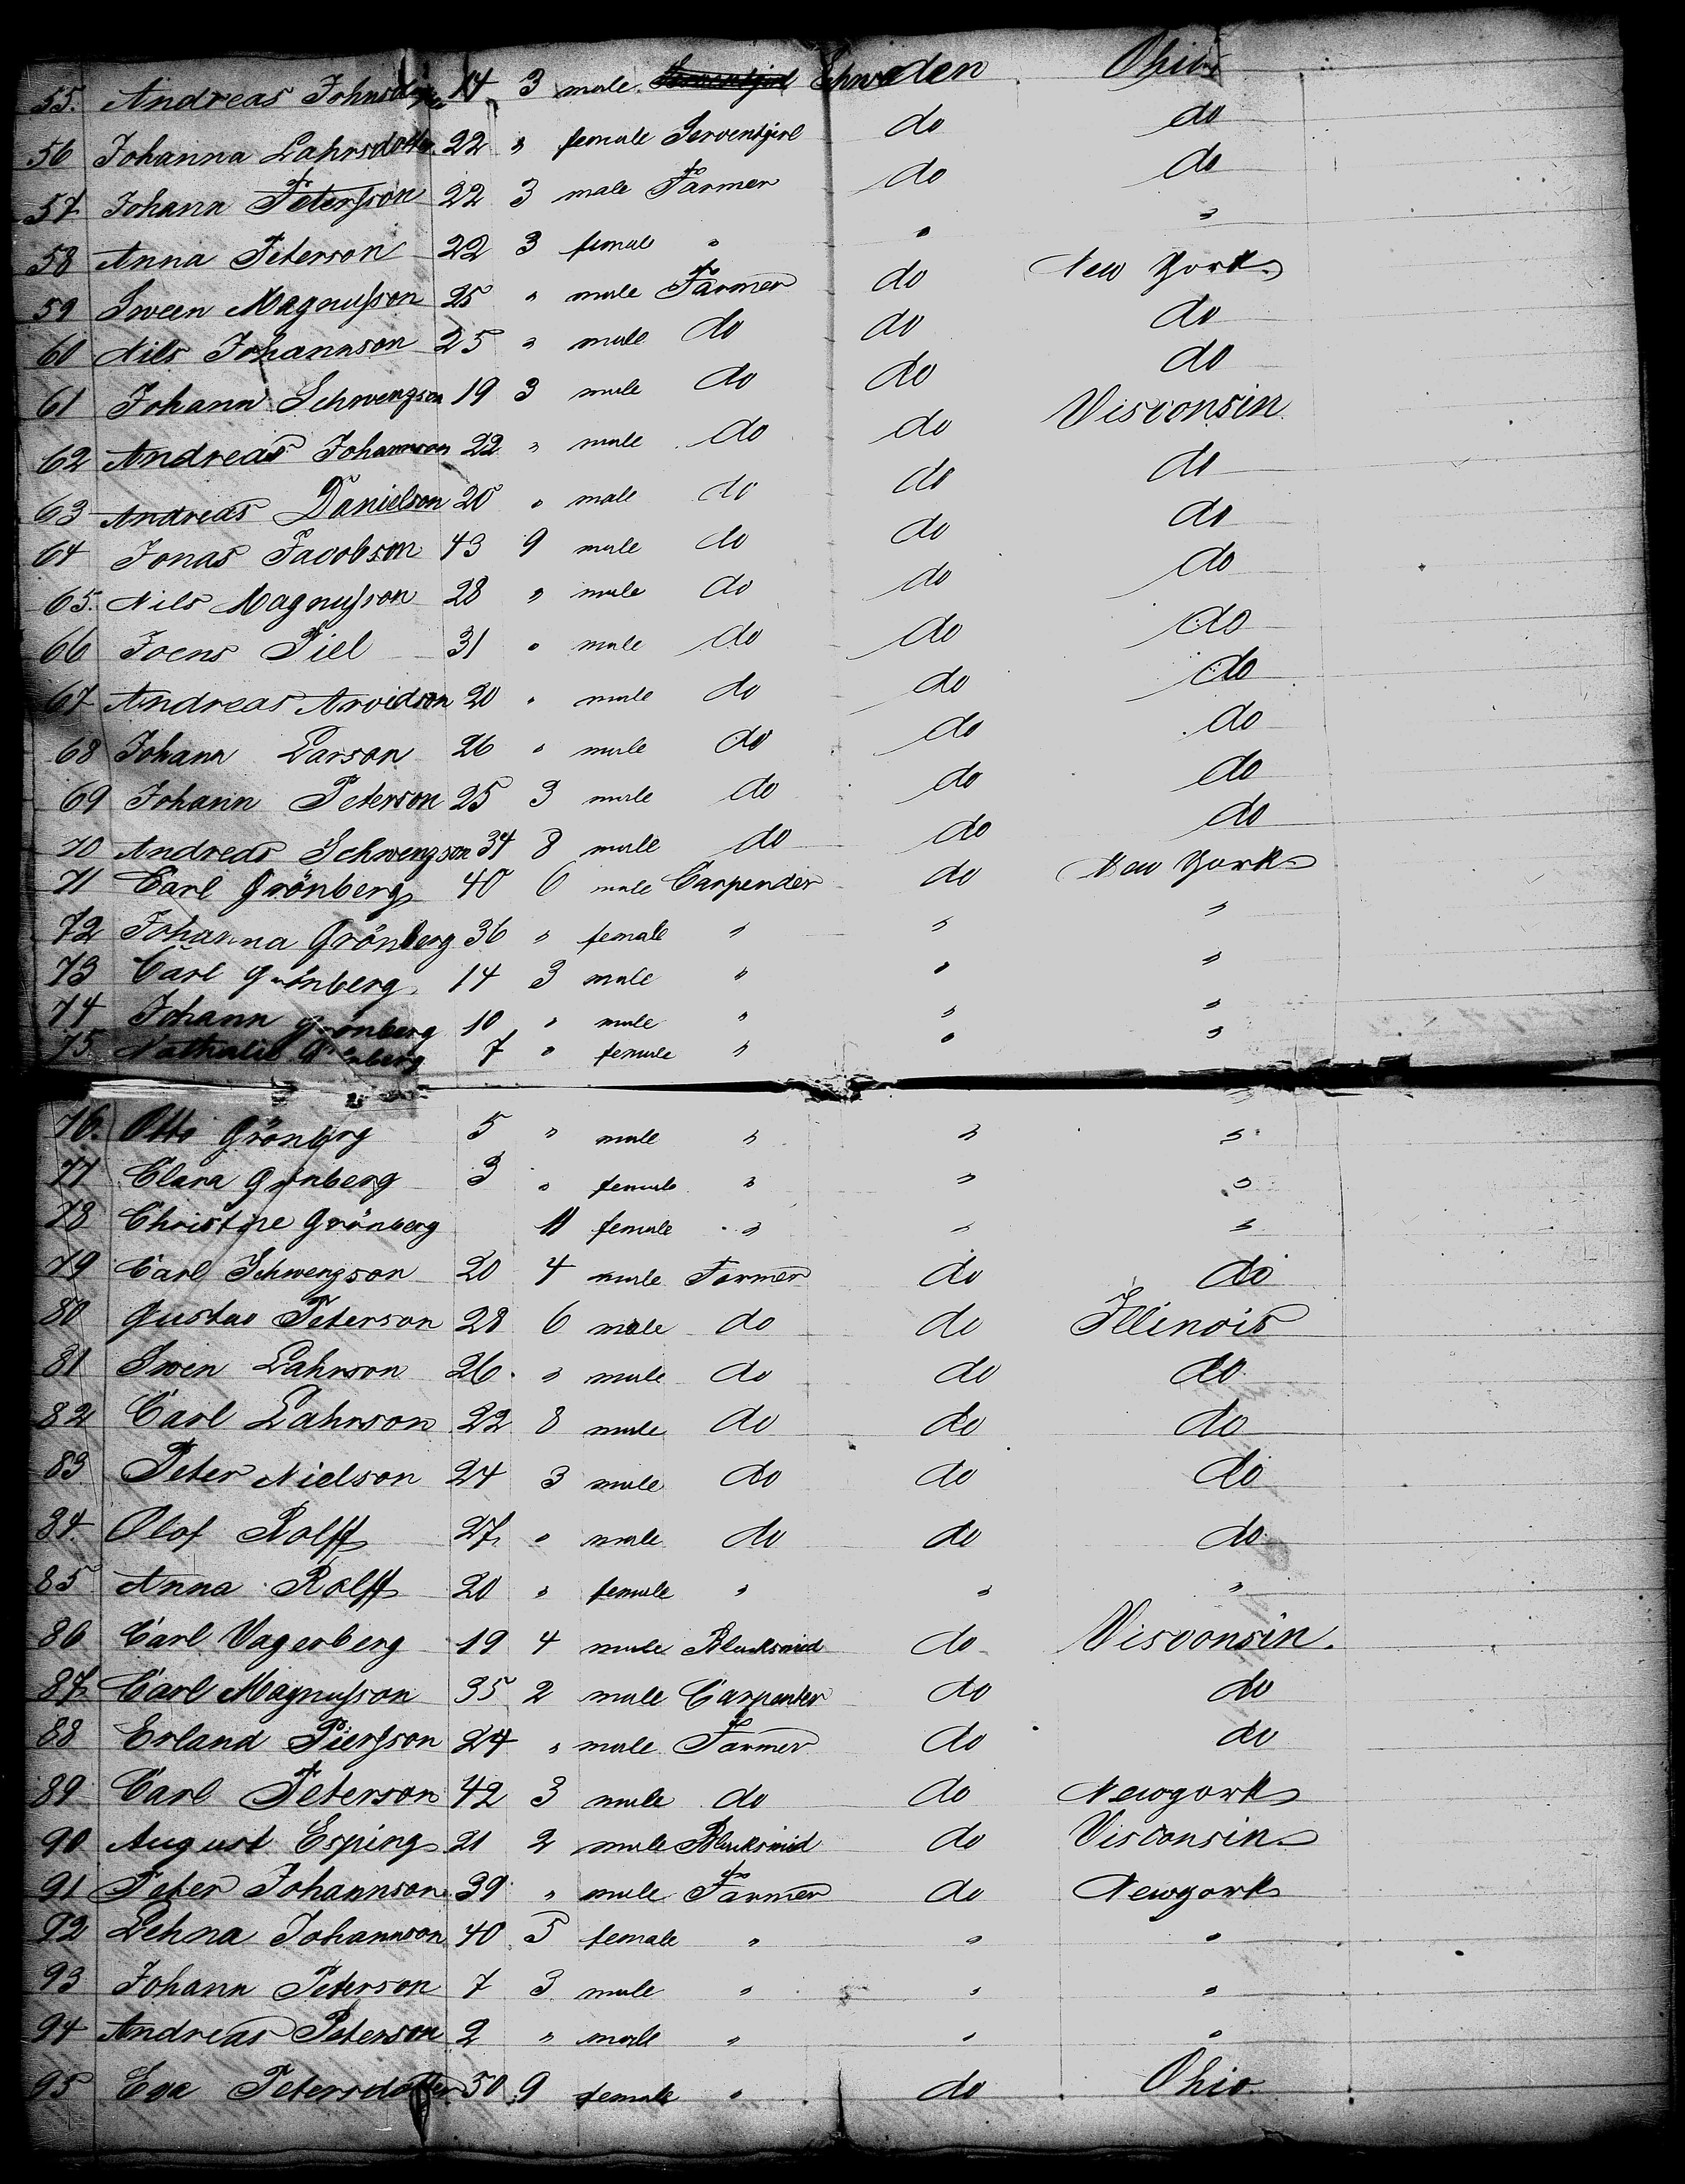 55. Andreas 14 3 male Schweden Ohio
56 Johanna Lahrsdotter 22 " female Serventgirl do do
57 Johann Petersson 22 3 male Farmer do do
58 Anna Peterson 22 3 female " " "
59 Sween Magnusson 25 " male Farmer do New York
60 Nils Johannson 25 " male do do do
61 Johann Schwengson 19 3 male do do do
62 Andreas Johannson 22 " male do do Visconsin
63 Andreas Danielson 20 " male do do do
64 Jonas Jacobson 43 9 male do do do
65. Nils Magnusson 28 " male do do do
66 Joens Piel 31 " male do do do
67 Andreas Arvidson 20 " male do do do
68 Johann Larson 26 " male do do do
69 Johann Peterson 25 3 male do do do
70 Andreas Schwengson 34 8 male do do do
71 Carl Grönberg 40 6 male Carpender do New York
72 Johanna Grönberg 36 " female " " "
73 Carl Grönberg 14 3 male " " "
74 Johann Grönberg 10 " male " " "
75. Nathalie Grönberg 7 " female " " "
76. Otto Grönberg 5 " male " " "
77 Clara Grönberg 3 " female " " "
78 Christine Grönberg 11 female " " "
79 Carl Schwengson 20 4 male Farmer do do
80 Gustav Peterson 28 6 male do do Illinois
81 Swen Lahrson 26 " male do do do
82 Carl Lahrson 22 8 male do do do
83 Peter Nielson 24 3 male do do do
84 Olof Rolff 27 " male do do do
85 Anna Rolff 20 " female " " "
86 Carl Vagerberg 19 4 male Blacksmid do Visconsin.
87 Carl Magnusson 35 2 male Carpenter do do
88 Erland Piersson 24 " male Farmer do do
89 Carl Peterson 42 3 male do do Newyork
90 August Esping 21 2 male Blacksmid do Visconsin
91 Peter Johannson 39 " male Farmer do Newyork
92 Lehna Johannson 40 5 female " " "
93 Johann Peterson 7 3 male " " "
94 Andreas Peterson 2 " male " " "
95 Eva Petersdotter 50 9 female " do Ohio